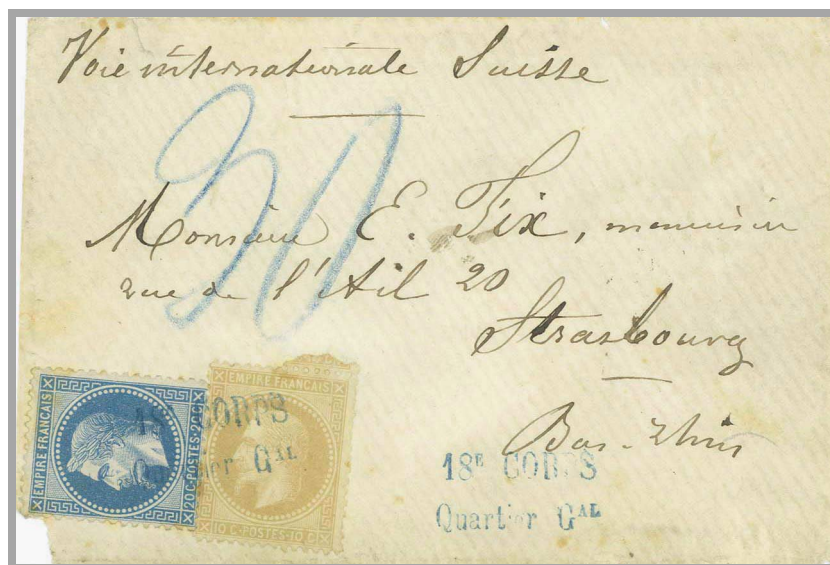 Voie internationale Suisse
30
Monsieur E. Fix, menuisier
rue de l'Ail 20
Strasbourg
Bas-Rhin
EMPIRE FRANÇAIS
20 C·POSTES·20 C
EMPIRE FRANÇAIS
10 C·POSTES·10 C
18E CORPS
Quartier GAL
18E CORPS
Quartier GAL